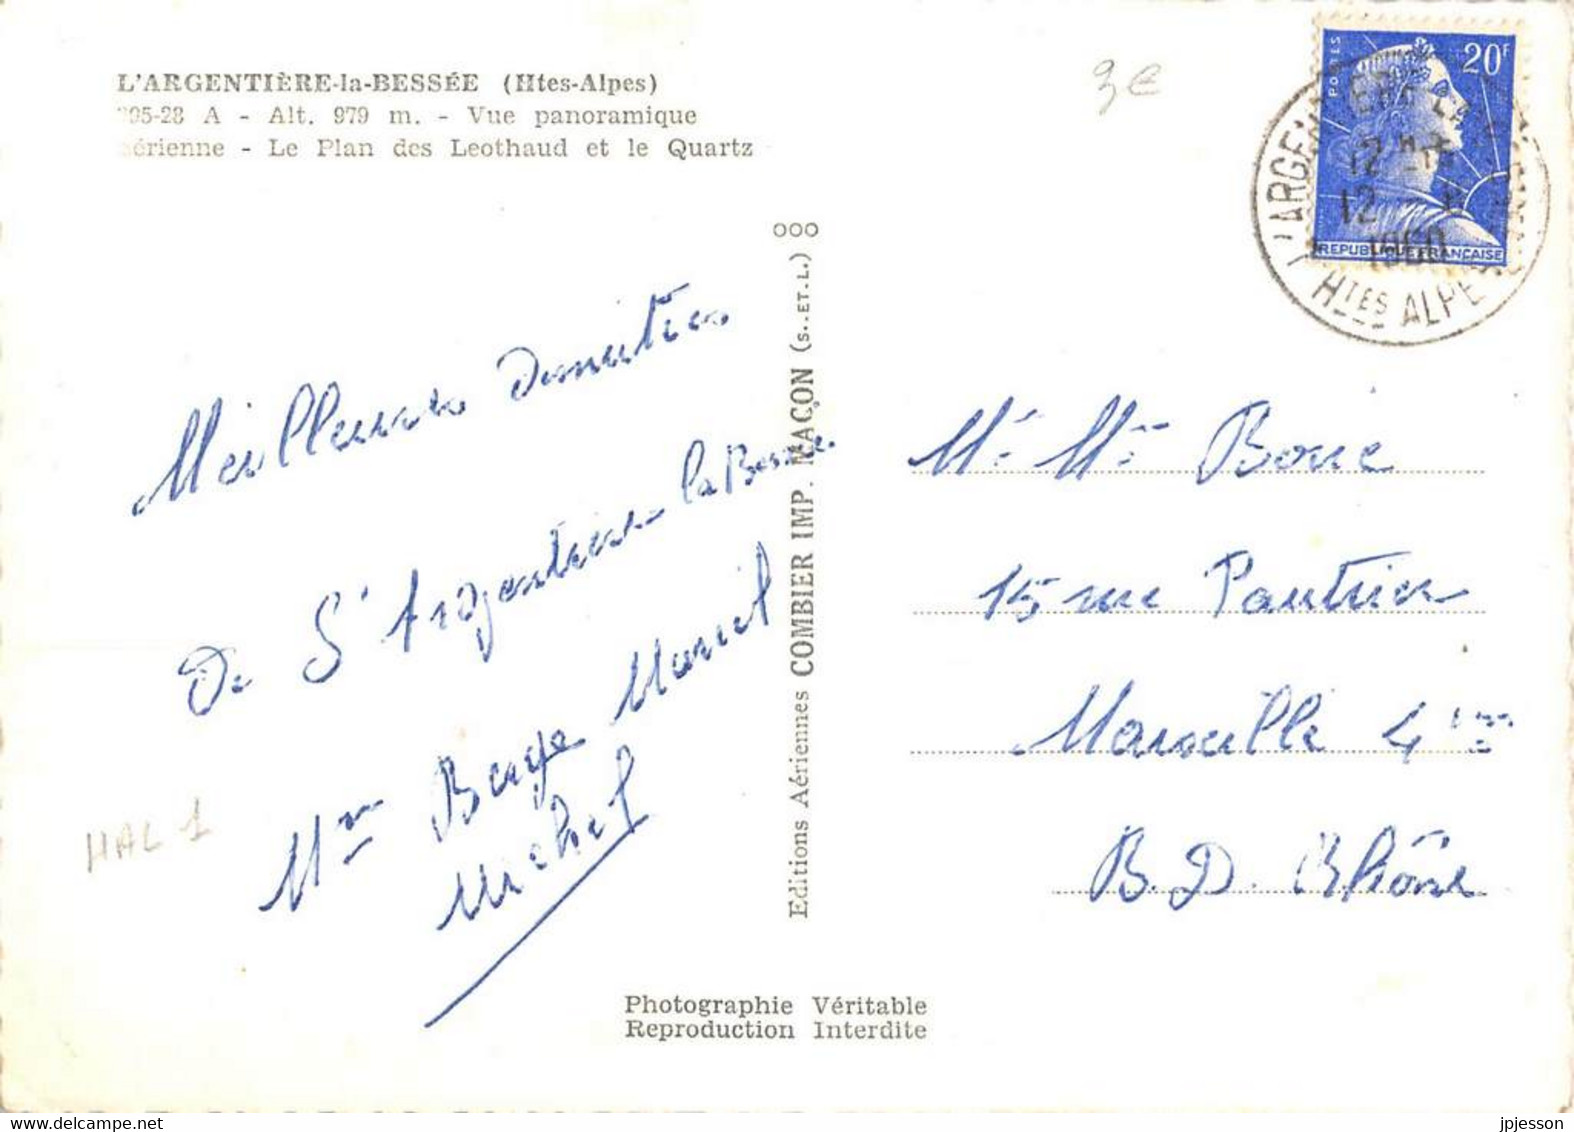 L'ARGENTIÈRE-la-BESSÉE (Htes-Alpes)
95-28 A - Alt. 979 m. - Vue panoramique
aérienne - Le Plan des Leothaud et le Quartz
3e
POSTES
20F
REPUBLIQUE FRANÇAISE
12 H
12
1960
HTES ALPES
OOO
Editions Aériennes COMBIER IMP. MACON (S..ET.L.)
Meilleures
De l'Argentière la Bessée
Mme Marcel
Michel
HAL 1
Mr Mme Boue
15 rue Pautrier
Marseille 4ème
B. D. Rhône
Photographie Véritable
Reproduction Interdite
jpjesson
www.delcampe.net